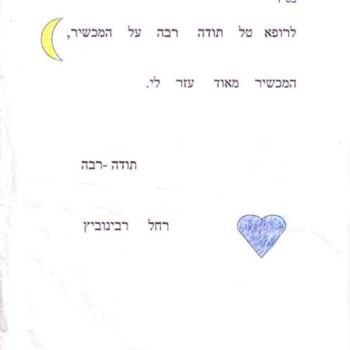 לרופא טל תודה רבה על המכשיר,
המכשיר מאוד עזר לי.
תודה -רבה
רחל רבינוביץ